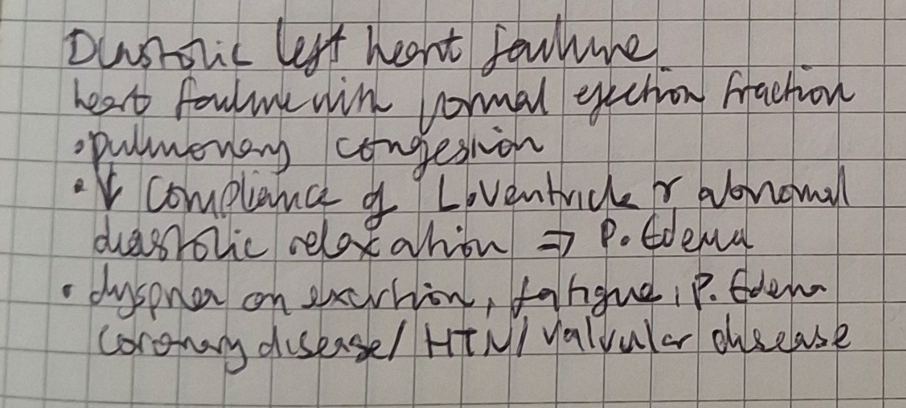 Diastolic left heart failure
heart failure with normal ejection fraction
• pulmonary congestion
• ↓ compliance of L.ventricle r abnormal
diastolic relaxation ⇒ P. Edema
• dyspnea on exertion, fatigue, P. Edema
coronary disease / HTN / valvular disease